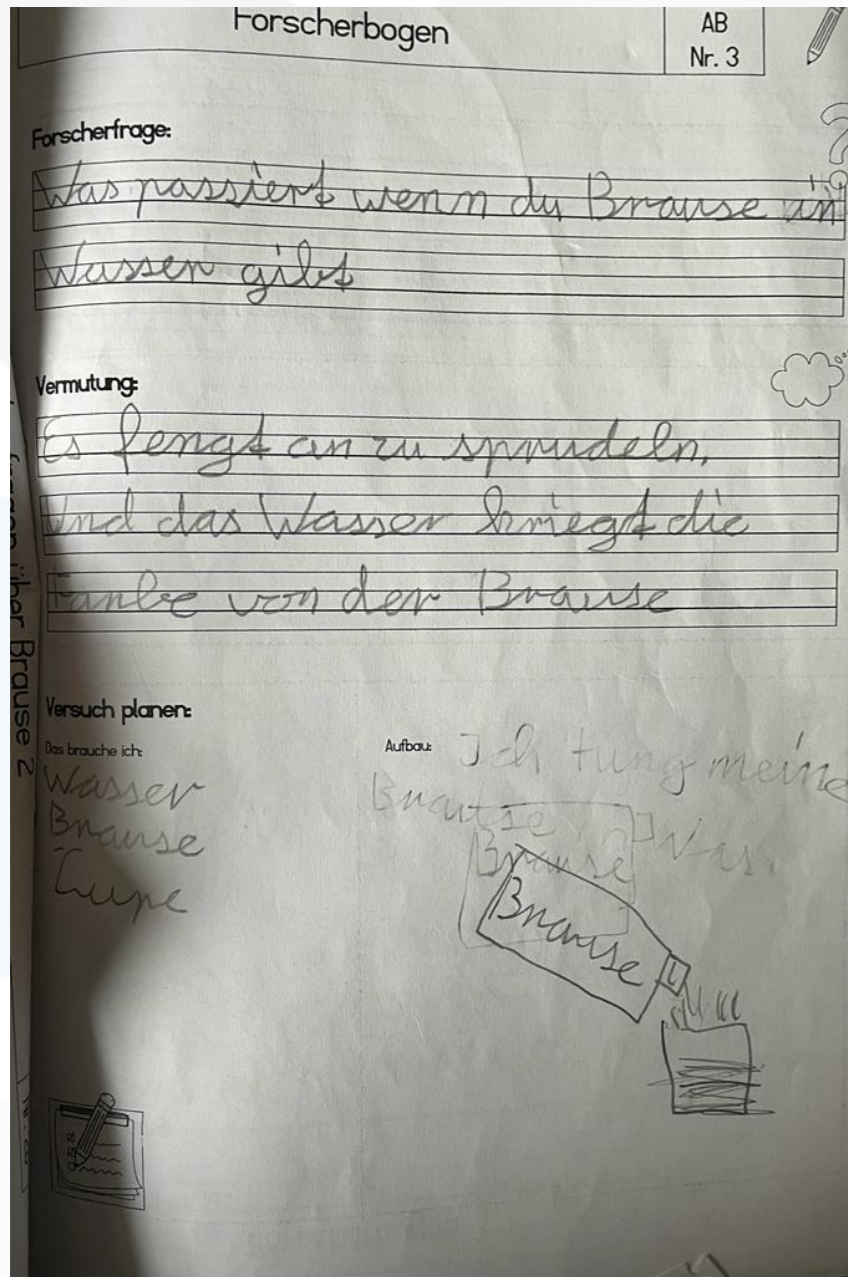 Forscherbogen
AB
Nr. 3
Forscherfrage:
Was passiert wenn du Brause in
Wasser gibst
Vermutung:
Es fengt an zu sprudeln.
Und das Wasser kriegt die
Farbe von der Brause
Versuch planen:
Das brauche ich:
Wasser
Brause
Lupe
Aufbau:
Ich tung meine
Brause in Was.
Brause
Brause
über Brause 2